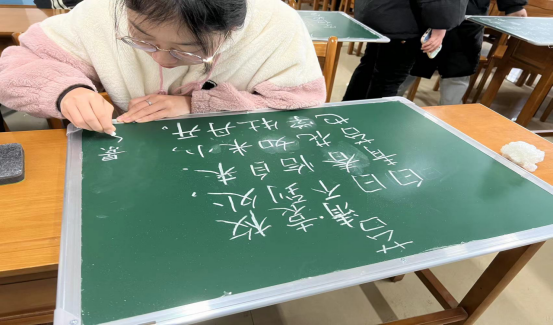 苔 清 袁枚
白日不到处，
青春恰自来。
苔花如米小，
也学牡丹开。
景